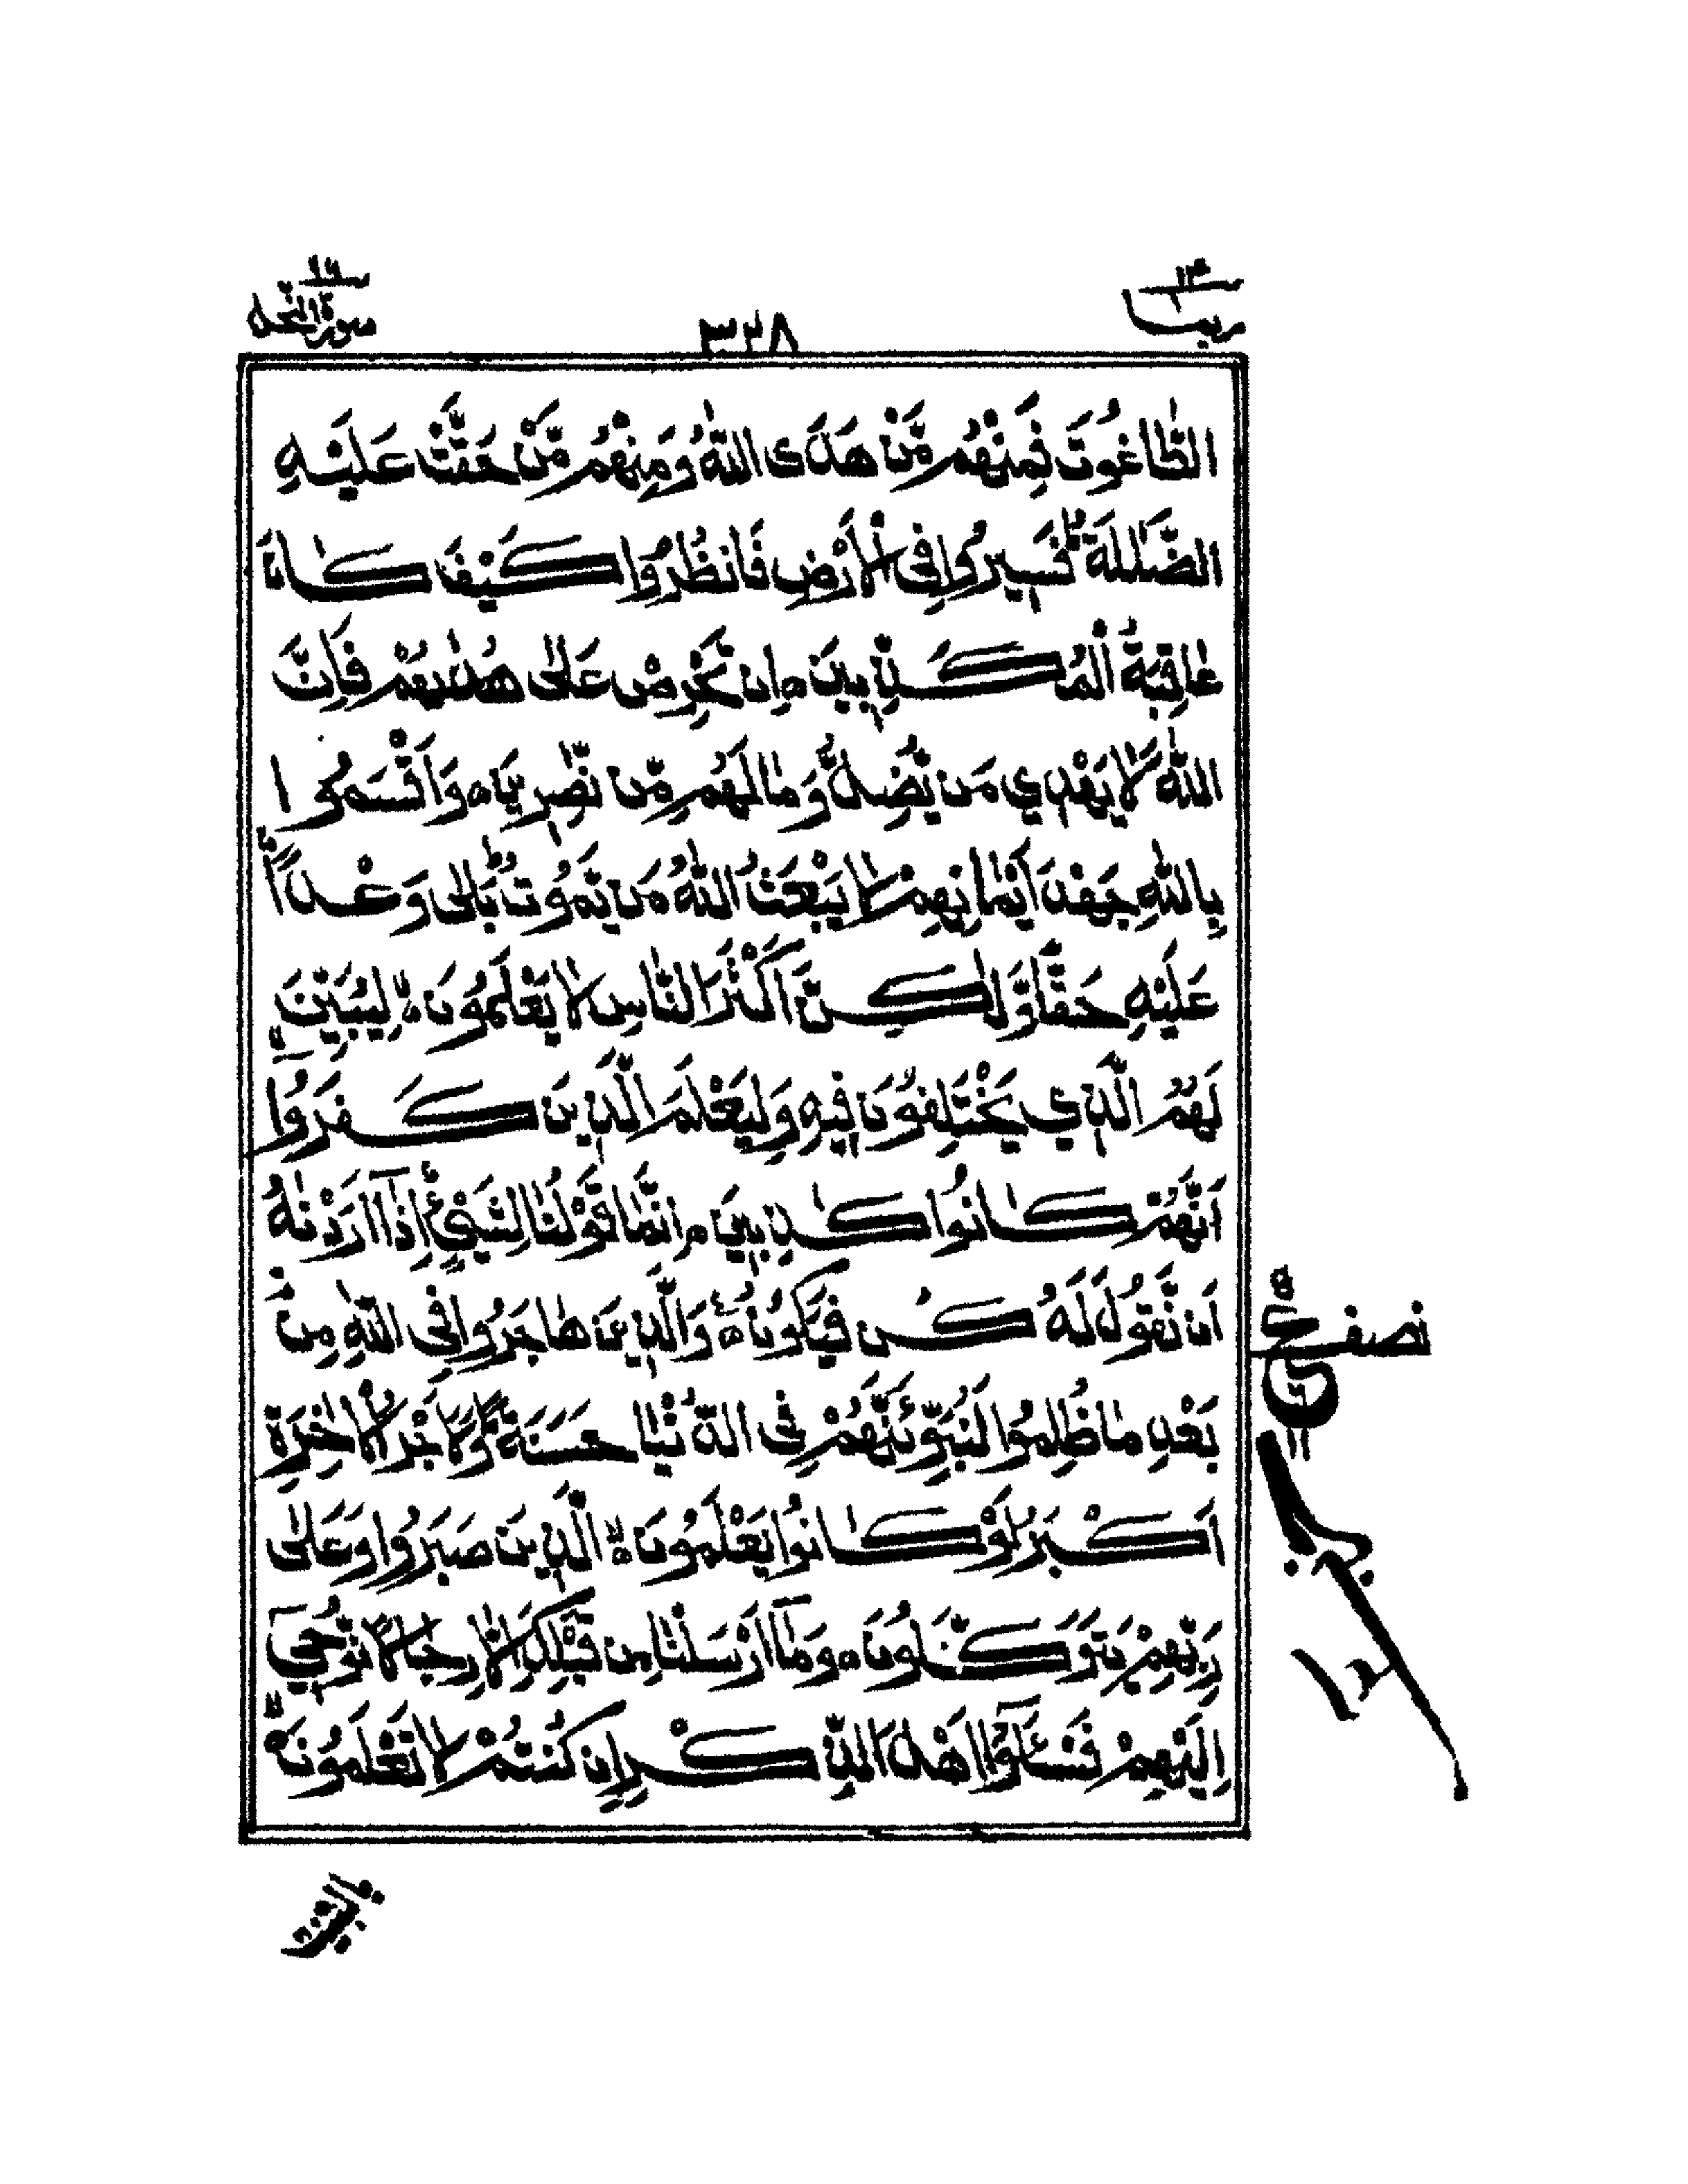 ربما ١٤
٣٢٨
سورة النحل ١٦
الطّٰاغُوتَ فَمِنْهُم مَّنْ هَدَى اللّٰهُ وَمِنْهُم مَّنْ حَقَّتْ عَلَيْهِ
الضَّلٰلَةُ ۚ فَسِيرُوا فِي الْأَرْضِ فَانظُرُوا كَيْفَ كَانَ
عَاقِبَةُ الْمُكَذِّبِينَ ه اِن تَحْرِصْ عَلٰى هُدٰىهُمْ فَاِنَّ
اللّٰهَ لَا يَهْدِي مَن يُّضِلُّ وَمَا لَهُم مِّن نّٰصِرِينَ ه وَاَقْسَمُوا
بِاللّٰهِ جَهْدَ اَيْمَانِهِمْ لَا يَبْعَثُ اللّٰهُ مَن يَّمُوتُ ۚ بَلٰى وَعْدًا
عَلَيْهِ حَقًّا وَّلٰكِنَّ اَكْثَرَ النَّاسِ لَا يَعْلَمُونَ ه لِيُبَيِّنَ
لَهُمُ الَّذِي يَخْتَلِفُونَ فِيهِ وَلِيَعْلَمَ الَّذِينَ كَفَرُوا
اَنَّهُمْ كَانُوا كٰذِبِينَ ه اِنَّمَا قَوْلُنَا لِشَيْءٍ اِذَا اَرَدْنٰهُ
اَن نَّقُولَ لَهُ كُن فَيَكُونُ ه وَالَّذِينَ هَاجَرُوا فِي اللّٰهِ مِنْ
بَعْدِ مَا ظُلِمُوا لَنُبَوِّئَنَّهُمْ فِي الدُّنْيَا حَسَنَةً ۚ وَلَاَجْرُ الْاٰخِرَةِ
اَكْبَرُ ۘ لَوْ كَانُوا يَعْلَمُونَ ه الَّذِينَ صَبَرُوا وَعَلٰى
رَبِّهِمْ يَتَوَكَّلُونَ ه وَمَا اَرْسَلْنَا مِن قَبْلِكَ اِلَّا رِجَالًا نُّوحِي
اِلَيْهِمْ فَسْـَٔلُوا اَهْلَ الذِّكْرِ اِن كُنتُمْ لَا تَعْلَمُونَ ه
نصف
بالبينت